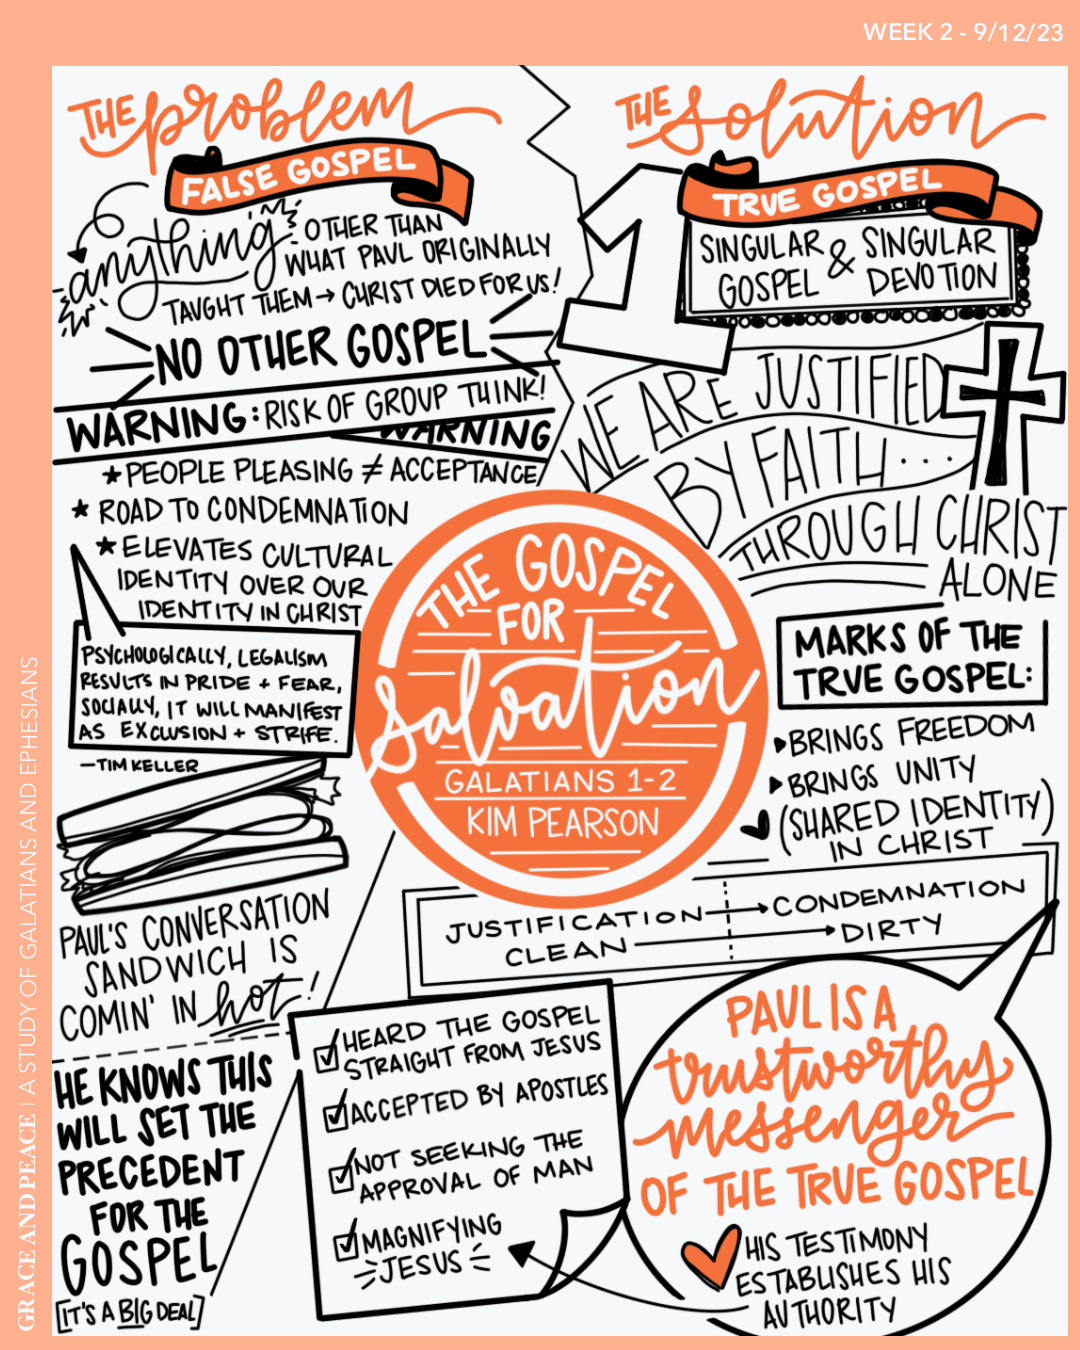 WEEK 2 - 9/12/23
GRACE AND PEACE | A STUDY OF GALATIANS AND EPHESIANS
THE problem
FALSE GOSPEL
anything OTHER THAN
WHAT PAUL ORIGINALLY
TAUGHT THEM → CHRIST DIED FOR US!
NO OTHER GOSPEL
WARNING: RISK OF GROUP THINK!
WARNING
★ PEOPLE PLEASING ≠ ACCEPTANCE
★ ROAD TO CONDEMNATION
★ ELEVATES CULTURAL
IDENTITY OVER OUR
IDENTITY IN CHRIST
PSYCHOLOGICALLY, LEGALISM
RESULTS IN PRIDE + FEAR,
SOCIALLY, IT WILL MANIFEST
AS EXCLUSION + STRIFE.
—TIM KELLER
PAUL'S CONVERSATION
SANDWICH IS
COMIN' IN hot!
HE KNOWS THIS
WILL SET THE
PRECEDENT
FOR THE
GOSPEL
[IT'S A BIG DEAL]
THE GOSPEL
FOR
Salvation
GALATIANS 1-2
KIM PEARSON
THE Solution
TRUE GOSPEL
1
SINGULAR GOSPEL & SINGULAR DEVOTION
WE ARE JUSTIFIED
BY FAITH...
THROUGH CHRIST
ALONE
MARKS OF THE
TRUE GOSPEL:
▸BRINGS FREEDOM
▸BRINGS UNITY
(SHARED IDENTITY)
IN CHRIST
JUSTIFICATION → CONDEMNATION
CLEAN → DIRTY
HEARD THE GOSPEL
STRAIGHT FROM JESUS
ACCEPTED BY APOSTLES
NOT SEEKING THE
APPROVAL OF MAN
MAGNIFYING
JESUS
PAUL IS A
trustworthy
messenger
OF THE TRUE GOSPEL
HIS TESTIMONY
ESTABLISHES HIS
AUTHORITY